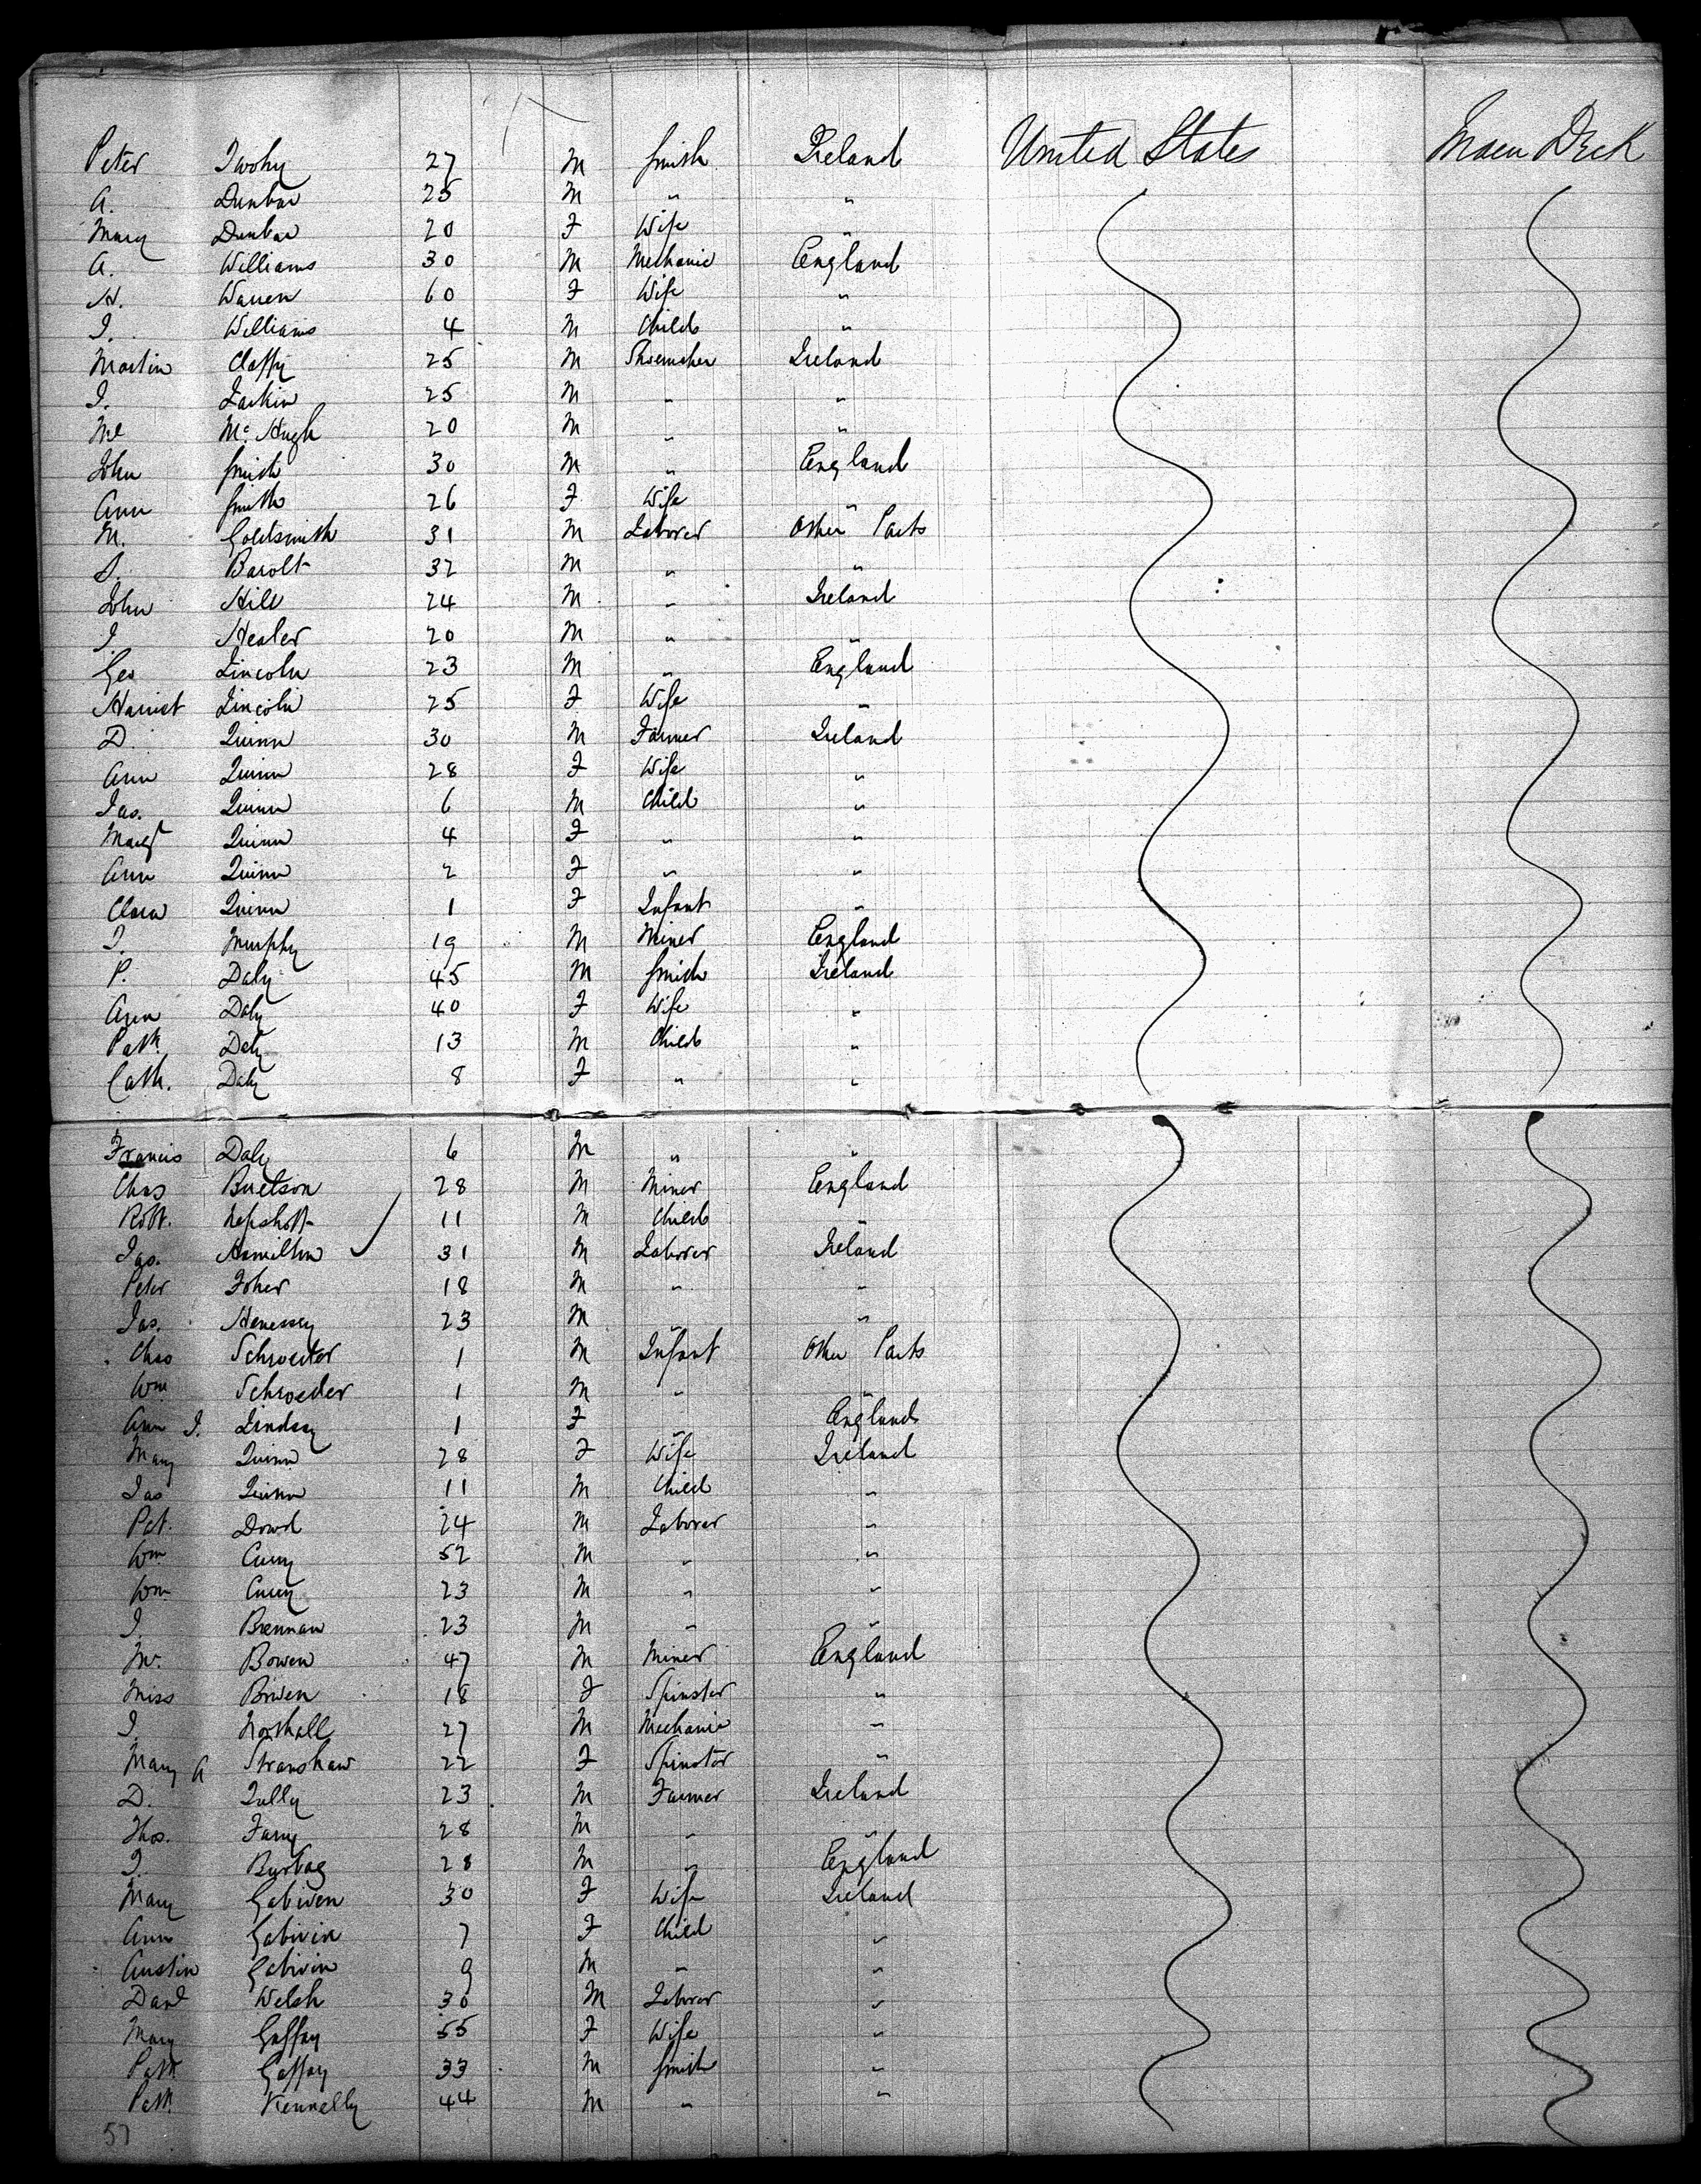 Peter Twohy 27 M Smith Ireland United States Main Deck
A. Dunbar 25 M " "
Mary Dunbar 20 F Wife "
A. Williams 30 M Mechanic England
H. Warren 60 F Wife "
J. Williams 4 M Child "
Martin Claffy 25 M Shoemaker Ireland
J. Larkin 25 M " "
Ml McHugh 20 M " "
John Smith 30 M " England
Ann Smith 26 F Wife "
M. Goldsmith 31 M Laborer Other Parts
S. Barolt 32 M " "
John Hill 24 M " Ireland
J. Healer 20 M " "
Geo Lincoln 23 M " England
Harriet Lincoln 25 F Wife "
D. Quinn 30 M Farmer Ireland
Ann Quinn 28 F Wife "
Jas. Quinn 6 M Child "
Margt Quinn 4 F " "
Ann Quinn 2 F " "
Clara Quinn 1 F Infant "
J. Murphy 19 M Miner England
P. Daly 45 M Smith Ireland
Ann Daly 40 F Wife "
Patk. Daly 13 M Child "
Cath. Daly 8 F " "
Francis Daly 6 M " "
Chas 28 M Miner England
Robt. 11 M Child "
Jas. Hamilton 31 M Laborer Ireland
Peter Foher 18 M " "
Jas. Henessy 23 M " "
Chas Schroeder 1 M Infant Other Parts
Wm Schroeder 1 M " "
Ann J. Lindsay 1 F " England
Mary Quinn 28 F Wife Ireland
Jas Quinn 11 M Child "
Pat. Dowd 24 M Laborer "
Wm Curry 52 M " "
Wm Curry 23 M " "
J. Brennan 23 M " "
Mr. Bowen 47 M Miner England
Miss Bowen 18 F Spinster "
J. Northall 27 M Mechanic "
Mary A Stranshaw 22 F Spinster "
D. Tully 23 M Farmer Ireland
Thos. Farry 28 M " "
J. 28 M " England
Mary Gabiven 30 F Wife Ireland
Ann Gabivin 7 F Child "
Austin Gabivin 9 M " "
Danl Welsh 30 M Laborer "
Mary Gaffay 55 F Wife "
Patk Gaffay 33 M Smith "
Patk. Kennelly 44 M " "
57